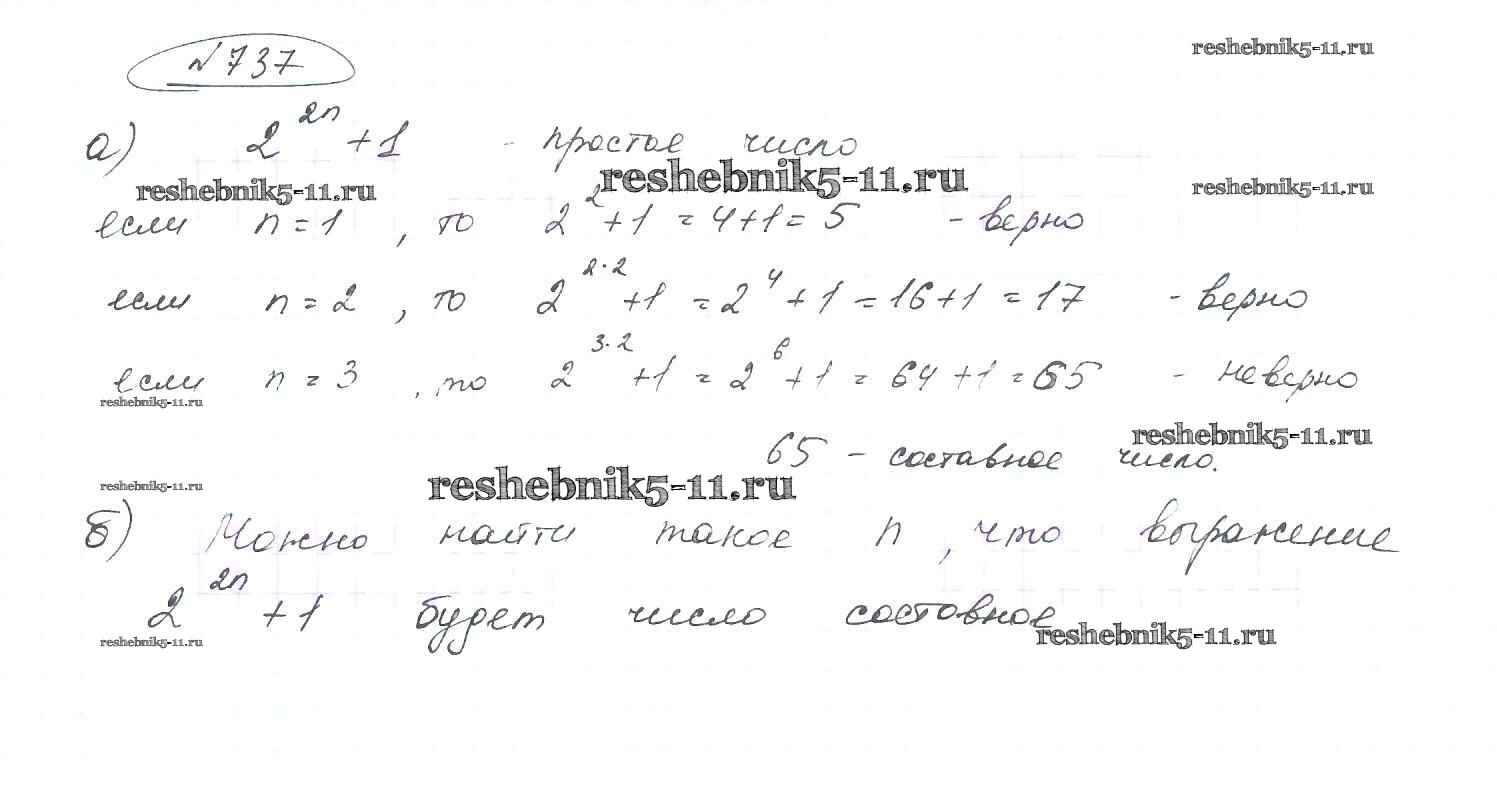 №737
reshebnik5-11.ru
а) 2^{2n} + 1 - простое число
reshebnik5-11.ru reshebnik5-11.ru reshebnik5-11.ru
если n = 1, то 2^2 + 1 = 4 + 1 = 5 - верно
если n = 2, то 2^{2·2} + 1 = 2^4 + 1 = 16 + 1 = 17 - верно
если n = 3, то 2^{3·2} + 1 = 2^6 + 1 = 64 + 1 = 65 - неверно
reshebnik5-11.ru
reshebnik5-11.ru
65 - составное число.
reshebnik5-11.ru reshebnik5-11.ru
б) Можно найти такое n, что выражение
2^{2n} + 1 будет число составное
reshebnik5-11.ru reshebnik5-11.ru